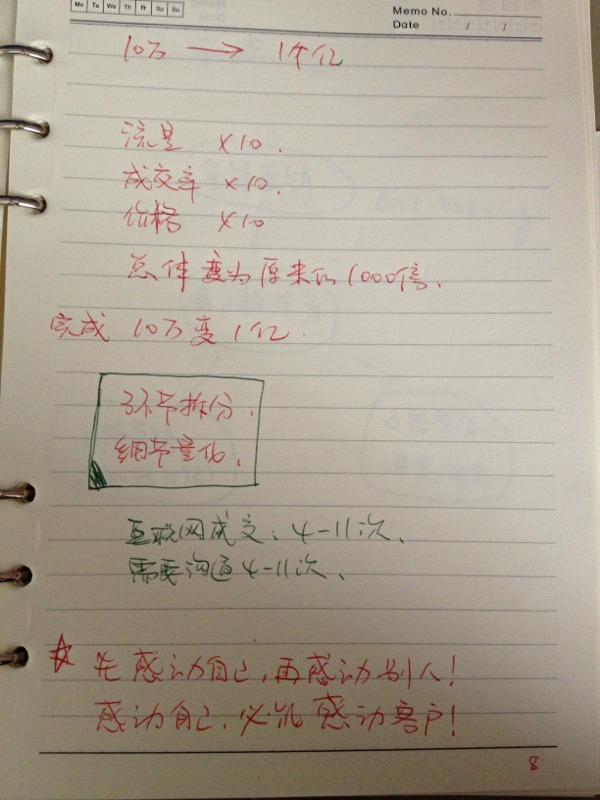 Mo Tu We Th Fr Sa Su
Memo No.
Date / /
10万 → 1个亿
流量 ×10.
成交率 ×10.
价格 ×10
总体变为原来的1000倍.
完成 10万变1亿.
环节拆分.
细节量化.
互联网成交: 4-11次.
需要沟通4-11次.
☆ 先感动自己,再感动别人!
感动自己,必能感动客户!
8